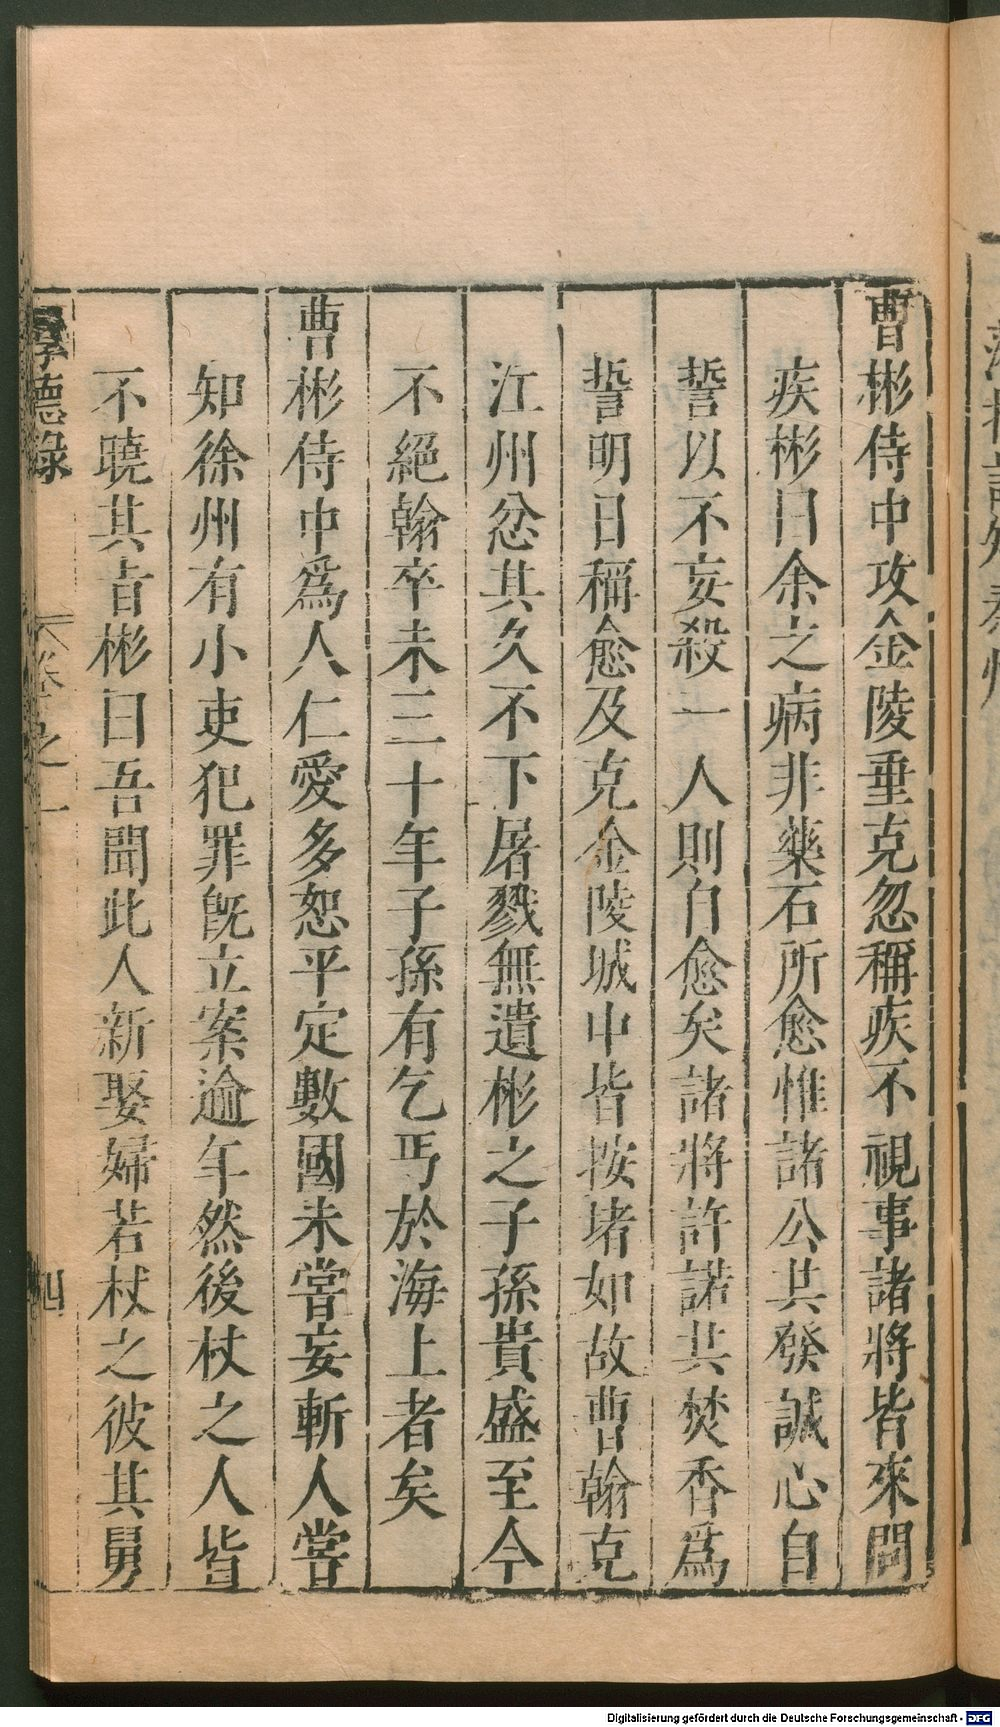 曹彬侍中攻金陵垂克忽稱疾不視事諸將皆來問
疾彬曰余之病非藥石所愈惟諸公共發誠心自
誓以不妄殺一人則自愈矣諸將許諾共焚香爲
誓明日稱愈及克金陵城中皆按堵如故曹翰克
江州忿其久不下屠戮無遺彬之子孫貴盛至今
不絕翰卒未三十年子孫有乞丐於海上者矣
曹彬侍中爲人仁愛多恕平定數國未嘗妄斬人嘗
知徐州有小吏犯罪旣立案逾年然後杖之人皆
不曉其旨彬曰吾聞此人新娶婦若杖之彼其舅
厚德錄 卷之一 四
Digitalisierung gefördert durch die Deutsche Forschungsgemeinschaft - DFG